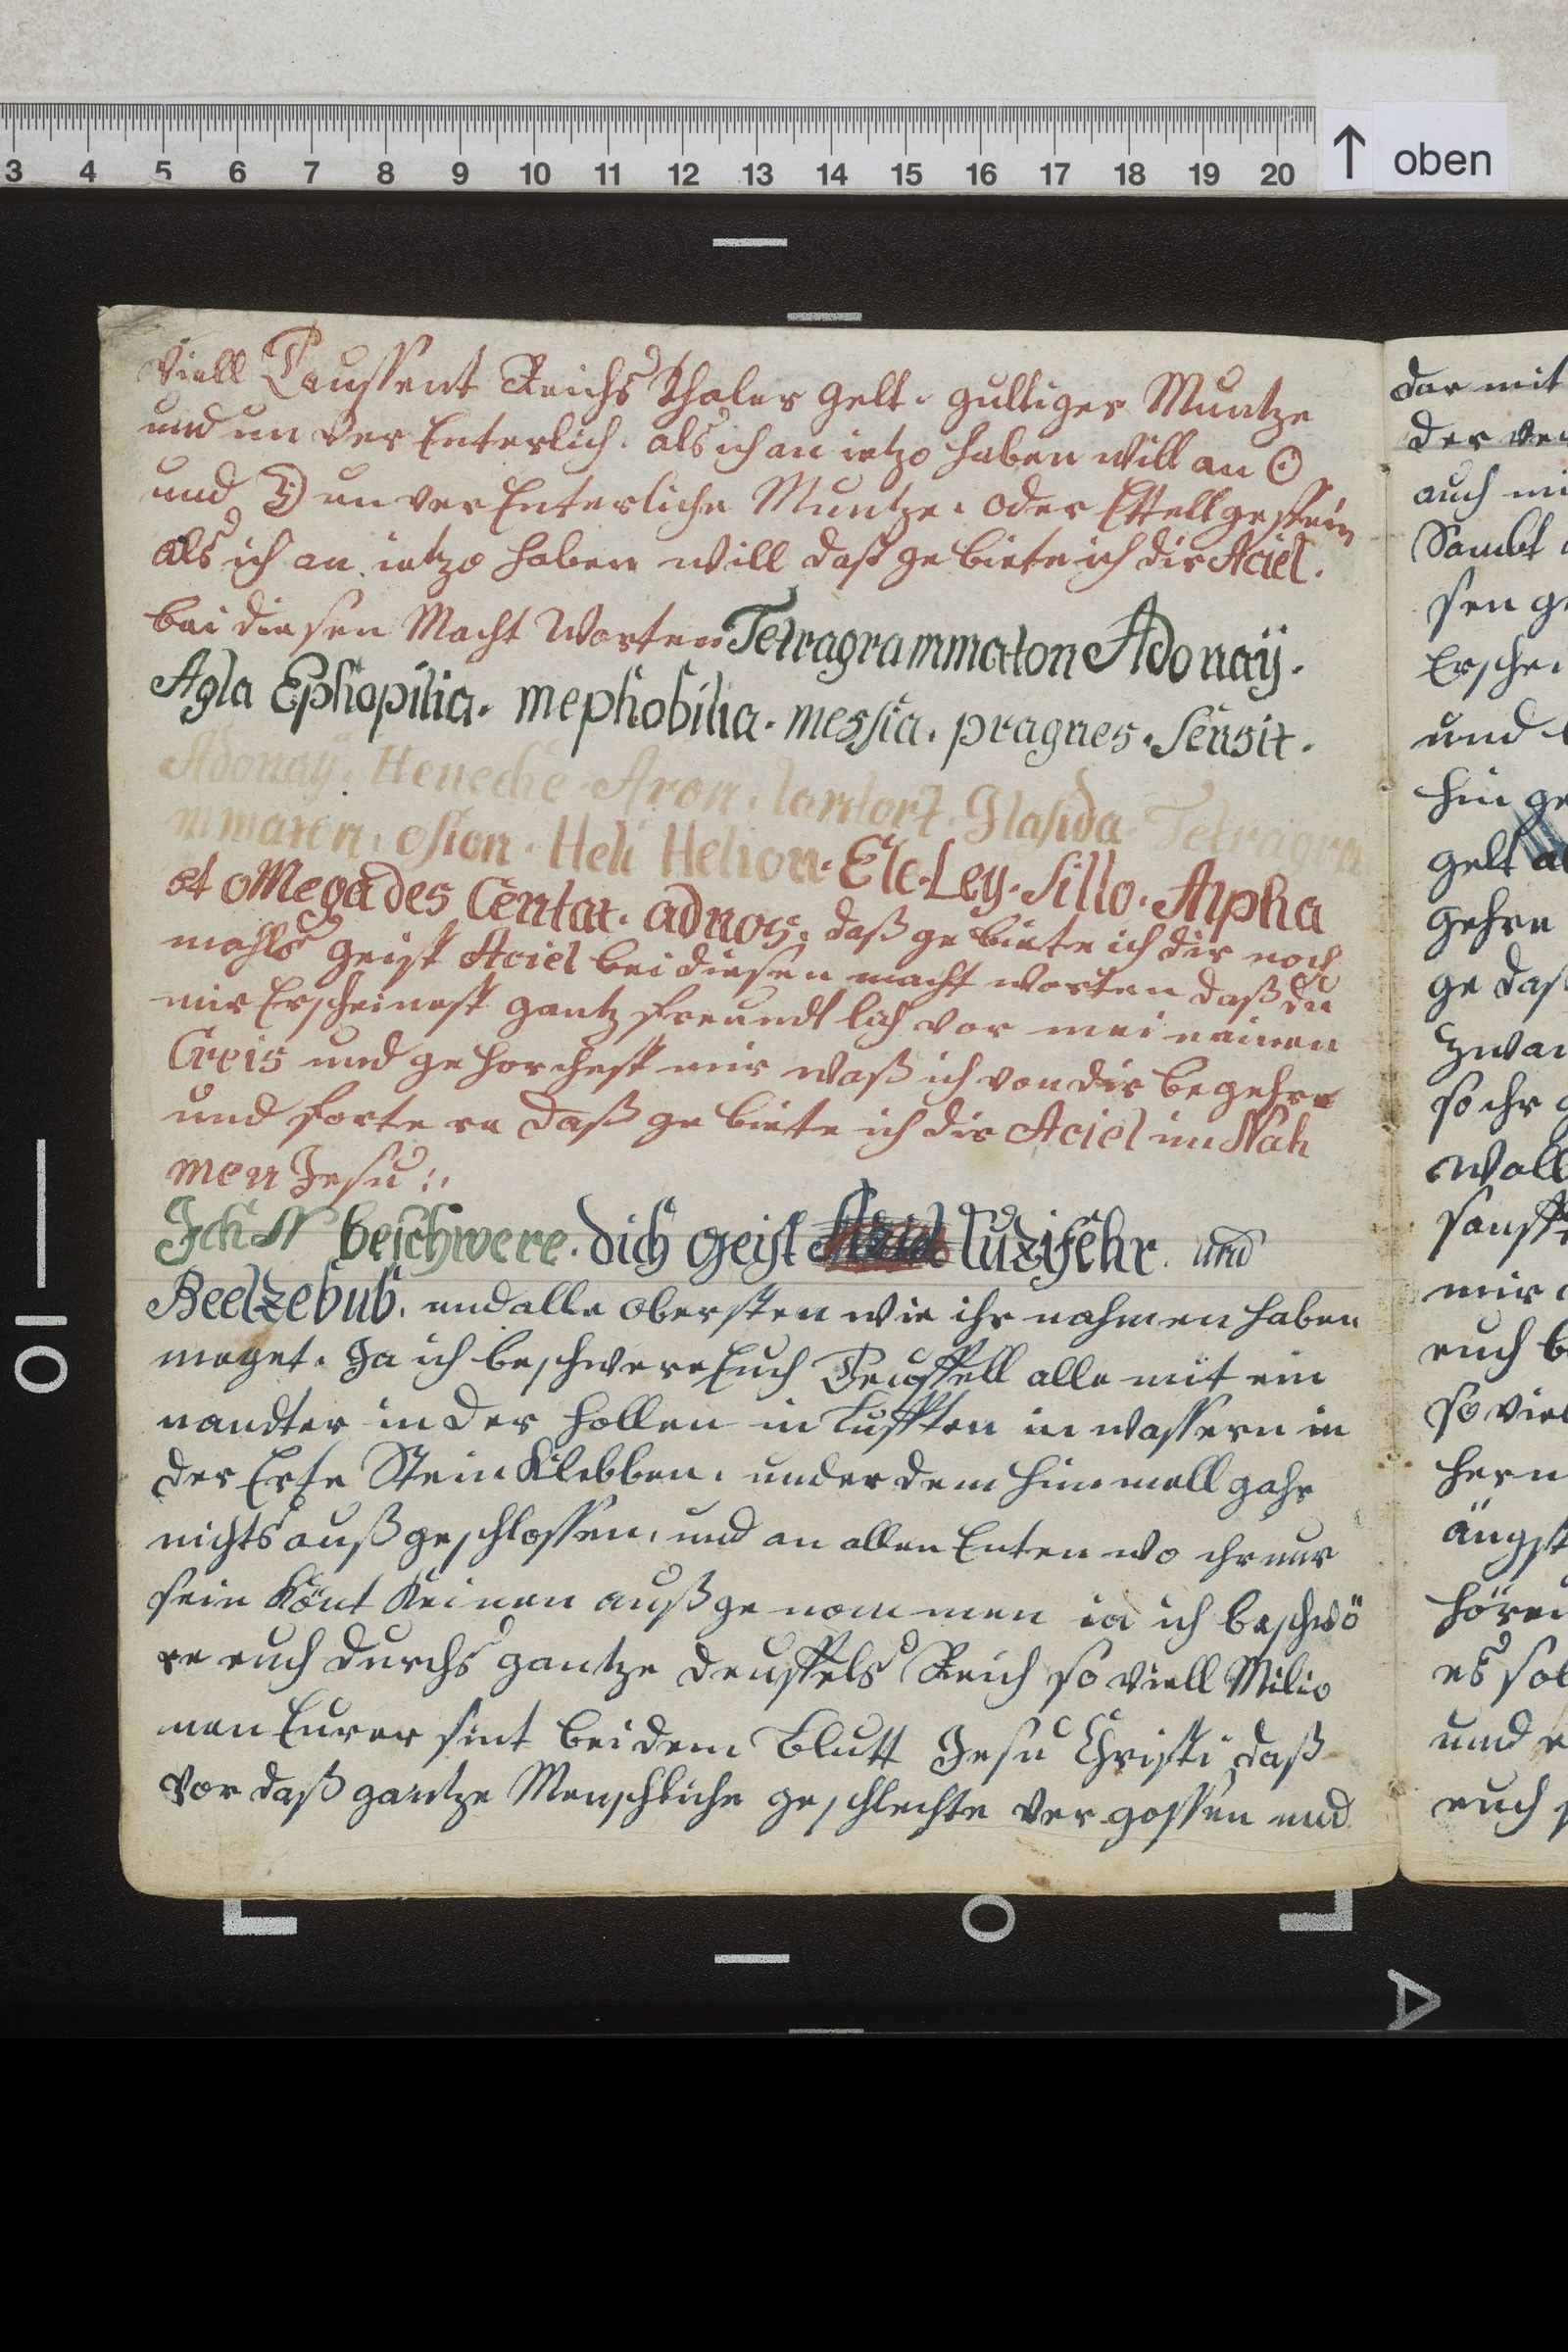 3 4 5 6 7 8 9 10 11 12 13 14 15 16 17 18 19 20 ↑ oben
Viell Taussent Reichs Thaler gelt. gultiger Muntze
und un ver Enterlich. als ich an ietzo haben will an ☉
und ☽ un ver Enterliche Muntze. oder Ettellgestein
als ich an ietzo haben will daß ge biete ich dir Aciel.
bei diesen Macht Worten Tetragrammaton Adonaÿ.
Agla Ephopilia. mephobilia. messia. pragnes. sensit.
Adonaÿ. Heneche Aron. lantort. Ilasida Tetragra
mmaton. osion. Heli Helion. Ele. Ley. sillo. Alpha
et oMega des Centat. adnos. daß ge biete ich dir noch
mahls geist Aciel bei diesen macht worten daß du
mir Erscheinest gantz freundt lich vor mei neinen
Creis und ge horchest mir waß ich von dir begehre
und forte re daß ge biete ich dir Aciel im Nah
men Jesu
Ich N beschwere. dich geist Aciel luzifehr. und
Beelzebub. und alle obersten wie ihr nahmen haben
moget. Ja ich beschwere Euch Teuffell alle mit ein
nandter in der hollen in Lufften in wassern in
der Erte Stein Klibben. under dem himmell gahr
nichts auß geschlossen. und an allen Enten wo ihr nur
sein Könt Keinen auß ge nom men ia ich beschwö
re euch durchs gantze deuffels Reich so viell Milio
nen Eurer sint bei dem Blutt Jesu Christi daß
vor daß gantze Menschliche geschlechte ver gossen und
dar mit
der ve
auch mi
Sambt
sen g
Ersche
und
hin ge
gelt al
gehre
ge daß
zwan
so ihr g
woll
sanfft
mir
euch b
so viel
hern
ängst
hören
es sol
und e
euch